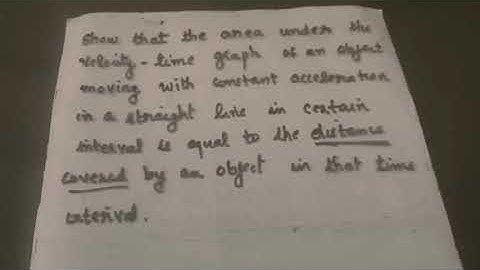 Show that the area under the
velocity - time graph of an object
moving with constant acceleration
in a straight line in certain
interval is equal to the distance
covered by an object in that time
interval.